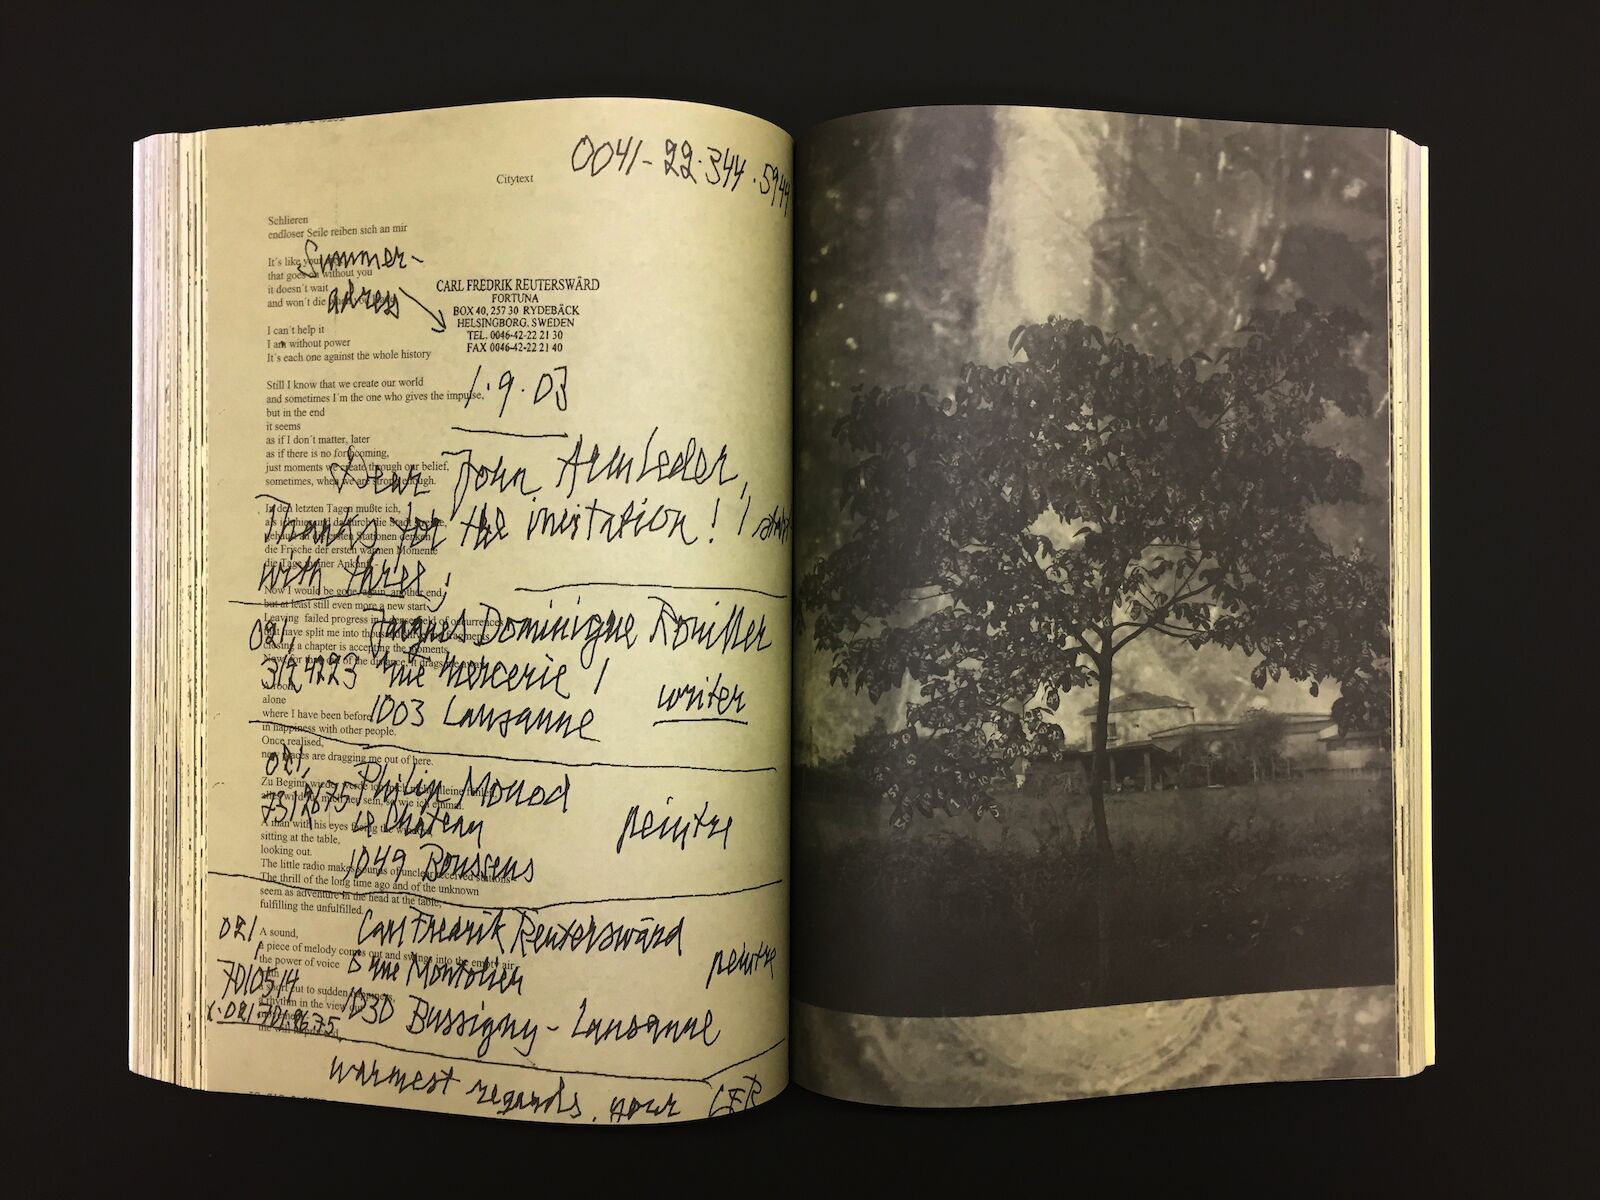 0041-22.344.5944
Citytext
Schlieren
endloser Seile reiben sich an mir
Summer-
adress
It´s like your
that goes on without you
it doesn´t wait
and won´t die
CARL FREDRIK REUTERSWÄRD
FORTUNA
BOX 40, 257 30 RYDEBÄCK
HELSINGBORG. SWEDEN
TEL. 0046-42-22 21 30
FAX 0046-42-22 21 40
I can´t help it
I am without power
It´s each one against the whole history
1.9.03
Still I know that we create our world
and sometimes I´m the one who gives the impulse,
but in the end
it seems
as if I don´t matter, later
as if there is no forthcoming,
just moments we create through our belief,
sometimes, when we are strong enough.
Dear John Armleder,
Thanks for the invitation! I start
with three;
In den letzten Tagen mußte ich,
die Stadt
die ersten Stationen denken
die Frische der ersten warmen Momente
die Tage meiner
Now I would be gone, again, another end,
but at least still even more a new start
Leaving failed progress in of occurrences
have split me into fragments
closing a chapter is accepting the moments,
021 Jacques Dominique Rouiller
312 4223 rue Mercerie 1 writer
1003 Lausanne
A room
alone
where I have been before
in happiness with other people.
Once realised,
new places are dragging me out of here.
021, Philip Monod
731 2675 le Château peintre
1049 Boussens
Zu Beginn
A man with his eyes facing the
sitting at the table,
looking out.
The little radio makes sounds of unclear received stations
The thrill of the long time ago and of the unknown
seem as adventure in the head at the table,
fulfilling the unfulfilled.
021, Carl Fredrik Reuterswärd
7010514 6 rue Montolieu peintre
1030 Bussigny-Lausanne
A sound,
a piece of melody comes out and swings into the empty air
the power of voice
a short cut to sudden
a rhythm in the view
warmest regards, your CFR